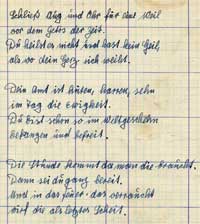 Schließ Aug und Ohr für eine Weil
vor dem Getös der Zeit.
Du heilst es nicht und hast kein Heil,
als wo dein Herz sich weiht.
Dein Amt ist hüten, harren, sehn
im Tag die Ewigkeit.
Du bist schon so im Weltgeschehn
befangen und befreit.
Die Stunde kommt da man dich braucht.
Dann sei du ganz bereit.
Und in das Feuer, das verraucht
wirf dich als letztes Scheit.